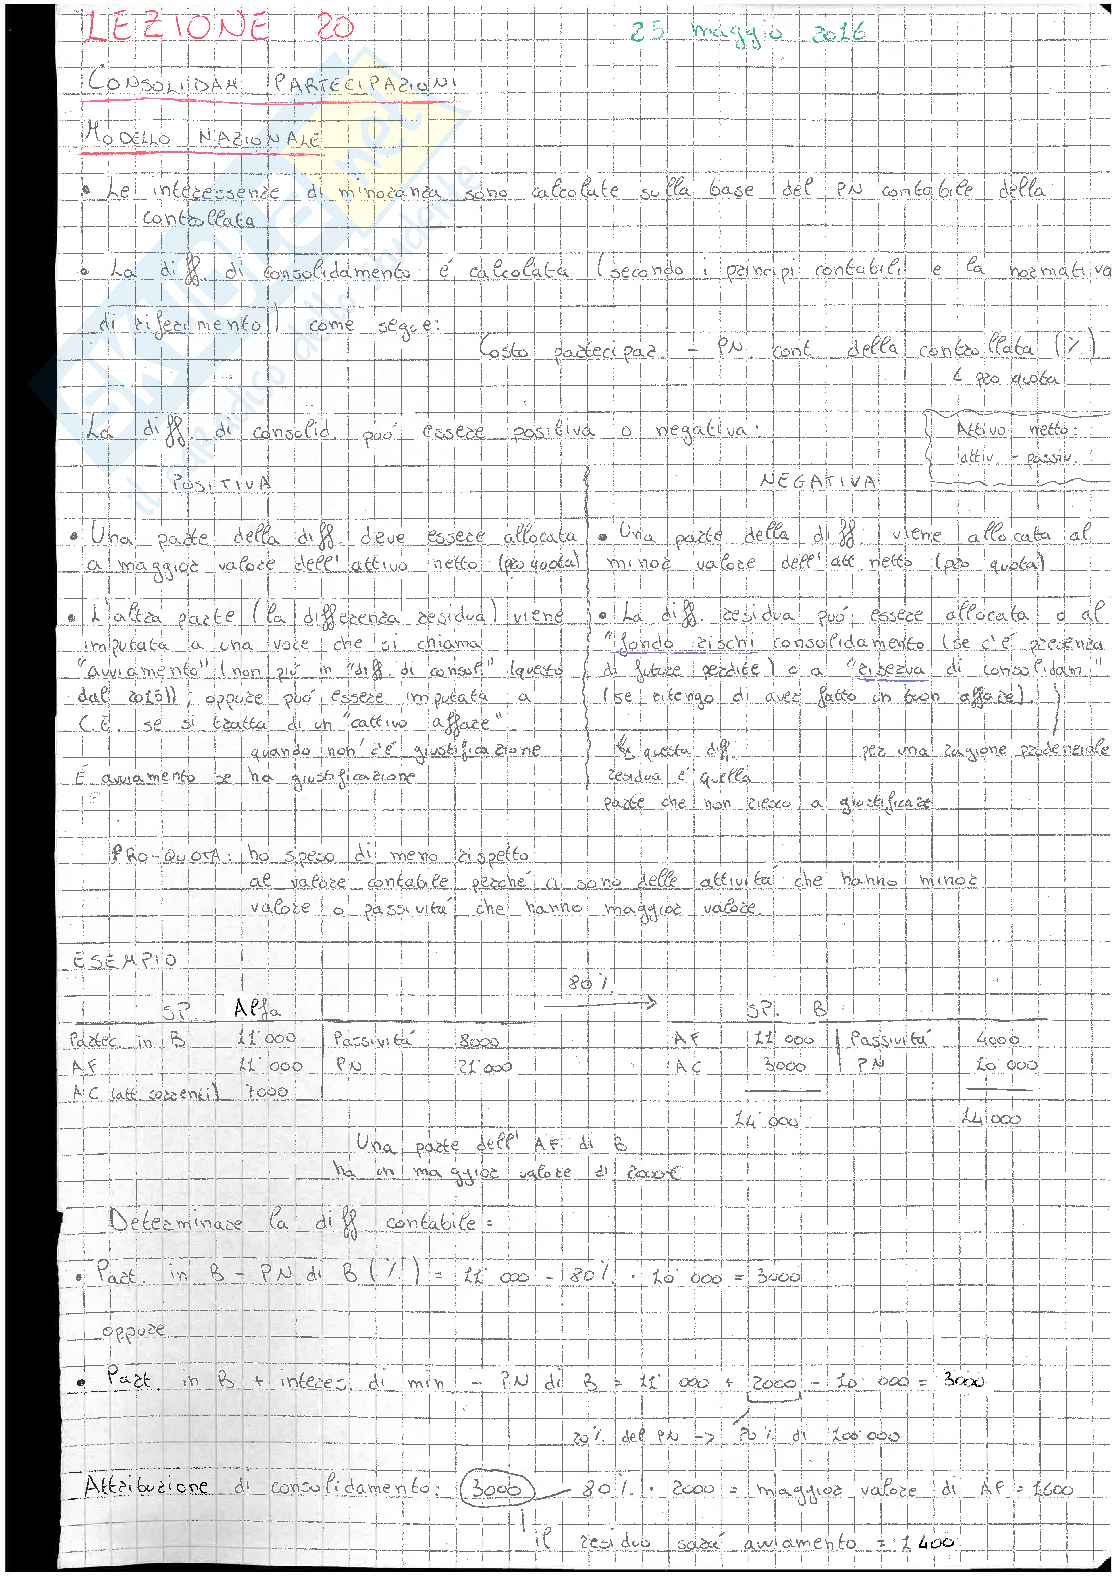 LEZIONE 20 25 maggio 2016
CONSOLIDAM PARTECIPAZIONI
MODELLO NAZIONALE
• Le interessenze di minoranza sono calcolate sulla base del PN contabile della
controllata
• La diff. di consolidamento é calcolata (secondo i principi contabili e la normativa
di riferimento) come segue:
Costo partecipaz. - PN. cont della controllata (%)
↳ pro quota
La diff. di consolid. può essere positiva o negativa:
Attivo netto:
attiv. - passiv.
POSITIVA
• Una parte della diff. deve essere allocata
a maggior valore dell'attivo netto (pro quota)
• L'altra parte (la differenza residua) viene
imputata a una voce che si chiama
"avviamento" (non più in "diff. di consol." (questo
dal 2015)), oppure può essere imputata a
C.E. se si tratta di un "cattivo affare".
quando non c'é giustificazione
É avviamento se ha giustificazione
NEGATIVA
• Una parte della diff. viene allocata al
minor valore dell'att netto (pro quota)
• La diff. residua può essere allocata o al
"fondo rischi consolidamento (se c'é presenza
di future perdite) o a "riserva di consolidam."
(se ritengo di aver fatto un buon affare).
↳ questa diff.
residua é quella
parte che non riesco a giustificare
per una ragione prudenziale
PRO-QUOTA: ho speso di meno rispetto
al valore contabile perché ci sono delle attività che hanno minor
valore o passività che hanno maggior valore.
ESEMPIO
80%
SP. Alfa
Partec in B 11'000 Passività 8000
AF 11'000 PN 21'000
AC (att. correnti) 7000
SP. B
AF 11'000 Passività 4000
AC 3000 PN 10'000
14'000 14'000
Una parte dell'AF di B
ha un maggior valore di 2000€
Determinare la diff contabile =
• Part. in B - PN di B (%) = 11'000 - 80% · 10'000 = 3000
oppure
• Part. in B + interes. di min - PN di B = 11'000 + 2000 - 10'000 = 3000
20% del PN -> 20% di 100'000
Attribuzione di consolidamento: 3000 80% · 2000 = maggior valore di AF = 1600
il residuo sarà avviamento = 1400